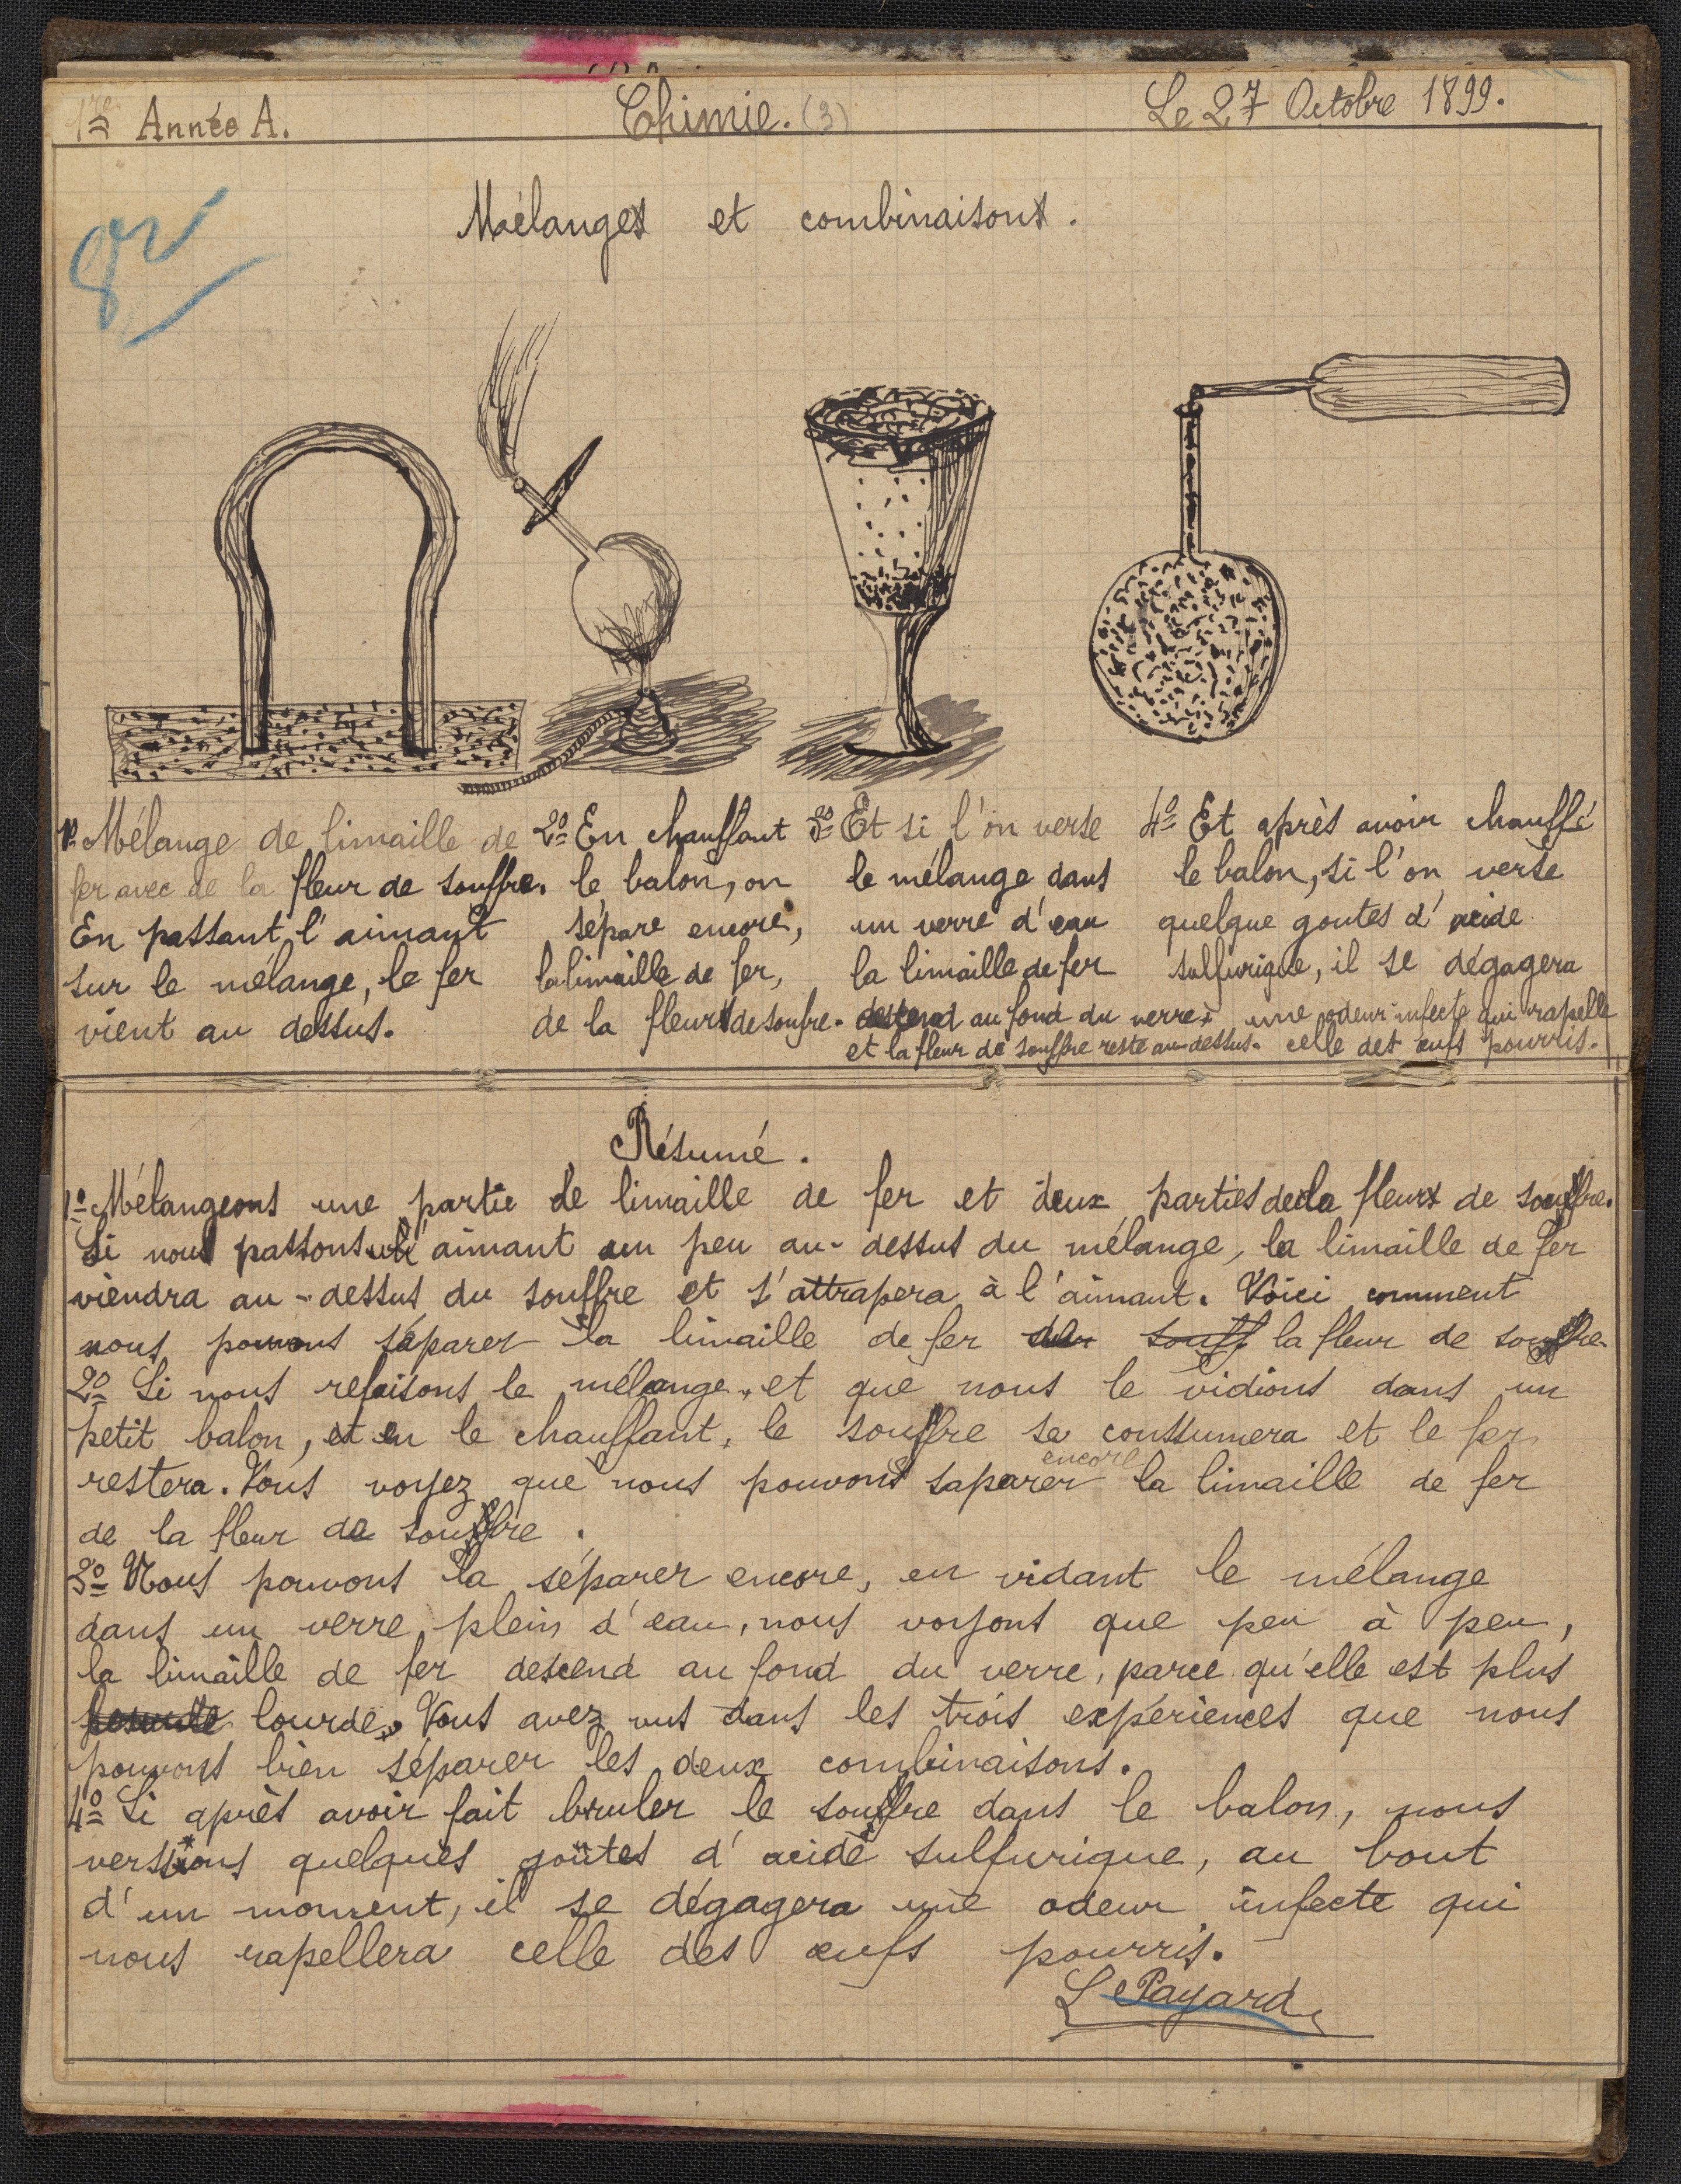 1re Année A.
Chimie. (3)
Le 27 Octobre 1899.
Mélanges et combinaisons.
1º Mélange de limaille de
fer avec de la fleur de souffre.
En passant l'aimant
sur le mélange, le fer
vient au dessus.
2º En chauffant
le balon, on
sépare encore,
la limaille de fer,
de la fleur de soufre.
3º Et si l'on verse
le mélange dans
un verre d'eau
la limaille de fer
descend au fond du verre
et la fleur de souffre reste au-dessus.
4º Et après avoir chauffé
le balon, si l'on verse
quelque goutes d'acide
sulfurique, il se dégagera
une odeur infecte qui rapelle
celle des œufs pourris.
Résumé.
1º Mélangeons une partie de limaille de fer et deux parties de la fleur de soufre.
Si nous passons l'aimant un peu au-dessus du mélange, la limaille de fer
viendra au-dessus du souffre et s'attrapera à l'aimant. Voici comment
nous pouvons séparer la limaille de fer de la fleur de soufre.
2º Si nous refaisons le mélange, et que nous le vidions dans un
petit balon, et en le chauffant, le soufre se consumera et le fer
restera. Vous voyez que nous pouvons encore saparer la limaille de fer
de la fleur de soufre.
3º Nous pouvons la séparer encore, en vidant le mélange
dans un verre plein d'eau, nous voyons que peu à peu,
la limaille de fer descend au fond du verre, parce qu'elle est plus
lourde. Vous avez vus dans les trois expériences que nous
pouvons bien séparer les deux combinaisons.
4º Si après avoir fait bruler le soufre dans le balon, nous
versions quelques goûtes d'acide sulfurique, au bout
d'un moment, il se dégagera une odeur infecte qui
nous rapellera celle des œufs pourris.
L Payard